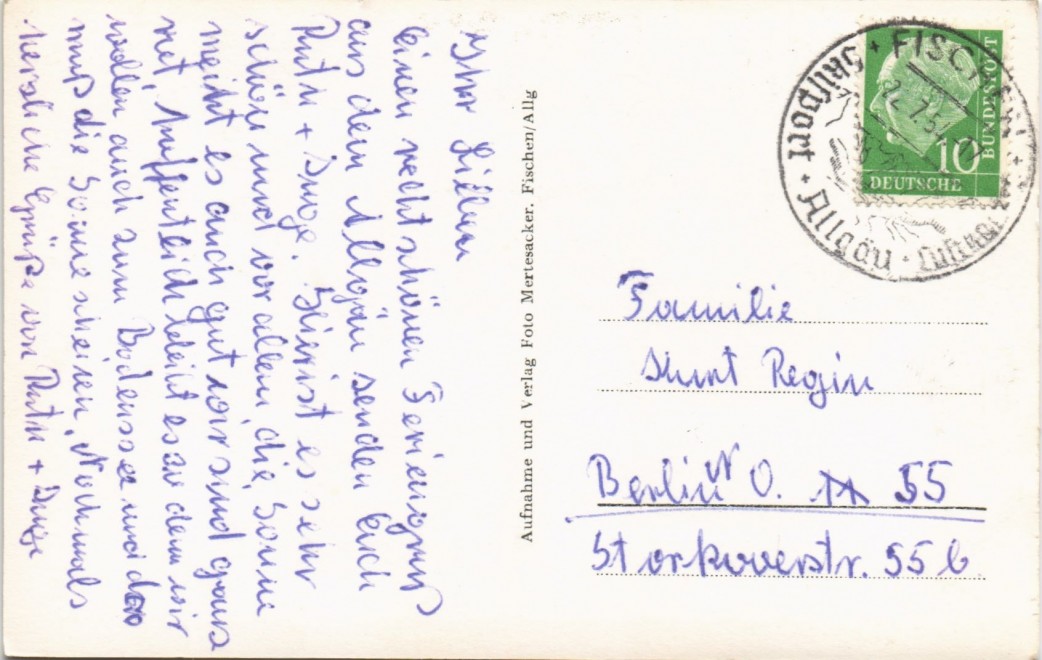 Ihr Lieben
Einen recht schönen Feriengruß
aus dem Allgäu senden Euch
Ruth + Inge. Hier ist es sehr
schön und vor allem die Sonne
meint es auch gut wir sind ganz
net, hoffentlich bleibt es so denn wir
wollen auch zum Bodensee und da
muß die Sonne scheinen, Nochmals
herzliche Grüße von Ruth + Inge
Aufnahme und Verlag Foto Mertesacker, Fischen/Allg
FISCHEN
Skisport + Allgäu
2.7.5
10
BUNDESPOST
DEUTSCHE
Familie
Kurt Regin
Berlin N O. 55
Storkowerstr. 55 b